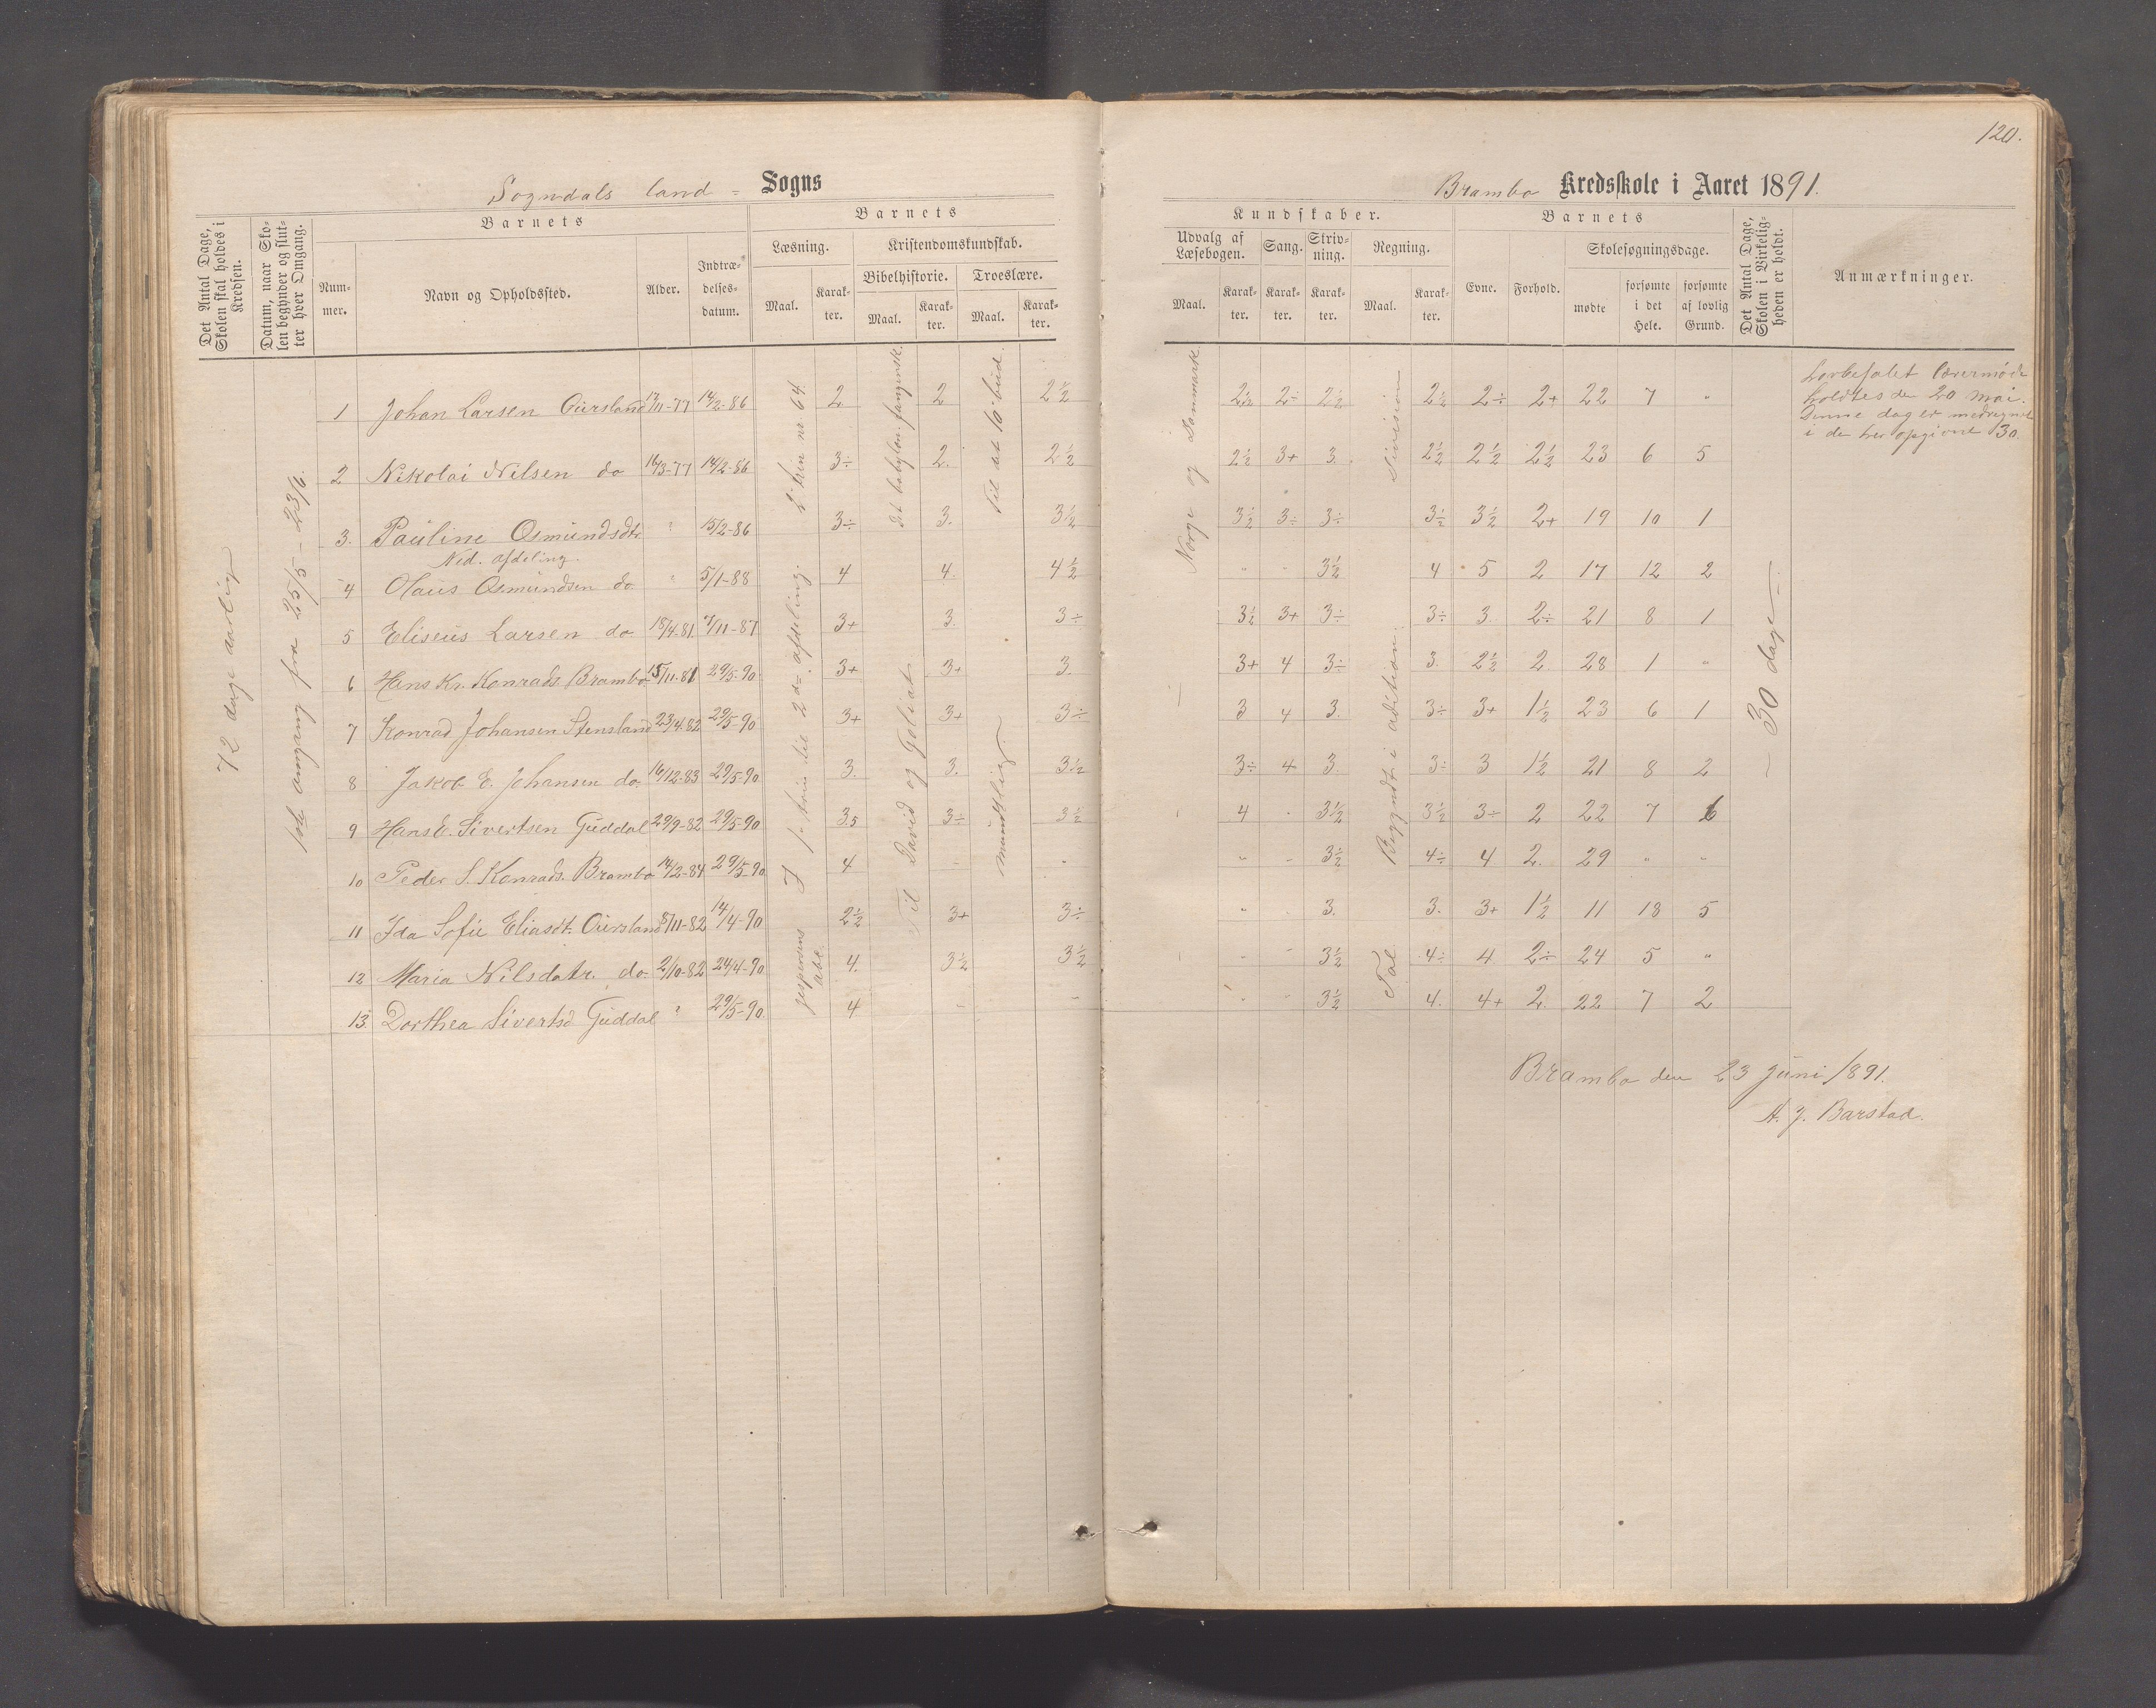 120.
Sogndals land = Sogns
Brambo Kredsskole i Aaret 1891.
Det Antal Dage, Skolen skal holdes i Kredsen.
Datum, naar Skolen begynder og slutter hver Omgang.
Barnets
Nummer.
Navn og Opholdssted.
Alder.
Indtrædelsesdatum.
Barnets
Læsning.
Maal.
Karakter.
Kristendomskundskab.
Bibelhistorie.
Maal.
Karakter.
Troeslære.
Maal.
Karakter.
Kundskaber.
Udvalg af Læsebogen.
Maal.
Karakter.
Sang.
Karakter.
Skrivning.
Karakter.
Regning.
Maal.
Karakter.
Barnets
Evne.
Forhold.
Skolesøgningsdage.
mødte
forsømte i det Hele.
forsømte af lovlig Grund.
Det Antal Dage, Skolen i Virkeligheden er holdt.
Anmærkninger.
72 dage aarlig
1ste omgang fra 25/5 - 23/6.
nr. 64.
det babylon. fangensk.
Til det 10 bud.
Norge og Danmark.
Division
1 Johan Larsen Oursland 17/11-77 14/2-86 2. 2 2½ 2½ 2÷ 2½ 2½ 2÷ 2+ 22 7 "
2 Nikolai Nilsen do 16/3-77 14/2-86 3÷ 2. 2½ 2½ 3+ 3. 2½ 2½ 2½ 23 6 5
3. Pauline Osmundsdtr " 15/2-86 3÷ 3. 3½ 3½ 3÷ 3÷ 3½ 3½ 2+ 19 10 1
Ned. afdeling
4 Olaus Osmundsen do " 5/1-88 4 4. 4½ " - 3½ 4 5 2 17 12 2
5 Eliseus Larsen do 18/4-81 7/11-87 3+ 3. 3÷ 3½ 3+ 3÷ 3÷ 3. 2÷ 21 8 1
6 Hans Kr. Konrads. Brambo 15/11-81 29/5-90 3+ 3+ 3. 3+ 4 3÷ 3 2½ 2 28 1 "
7 Konrad Johansen Stensland 23/4-82 29/5-90 3+ 3+ 3÷ 3 4 3. 3÷ 3+ 1½ 23 6 1
8 Jakob E. Johansen do. 16/12-83 29/5-90 3. 3. 3½ 3÷ 4 3. 3÷ 3 1½ 21 8 2
9 Hans E. Sivertsen Guddal 29/9-82 29/5-90 3,5 3÷ 3½ 4 - 3½ 3½ 3÷ 2 22 7 6
10 Peder S. Konrads. Brambo 14/2-84 29/5-90 4 - " " - 3½ 4÷ 4 2. 29 " "
11 Ida Sofie Eliasdt. Oursland 8/11-82 14/4-90 2½ 3+ 3÷ " 3. 3. 3+ 1½ 11 18 5
12 Maria Nilsdatr. do. 2/10-82 24/4-90 4. 3½ 3½ " - 3½ 4÷ 4 2÷ 24 5 "
13 Dorthea Sivertsd Guddal " 29/5-90. 4 - - " - 3½ 4. 4+ 2. 22 7 2
2den afdeling.
jespersens abc
Til David og Goliat
mundtlig
Begyndt i addition.
Tal
- 30 dage -
holdtes den 20 mai.
Denne dag er medregnet
i de her opgivne 30.
Brambo den 23 Juni 1891.
A. J. Barstad.